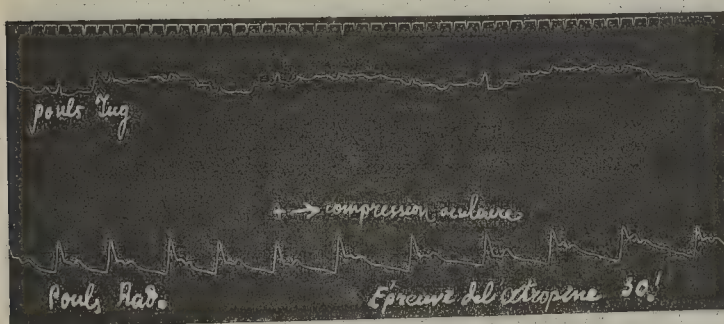 pouls Jug
+→ compression oculaire
Pouls Rad.
Épreuve de l'atropine 30'